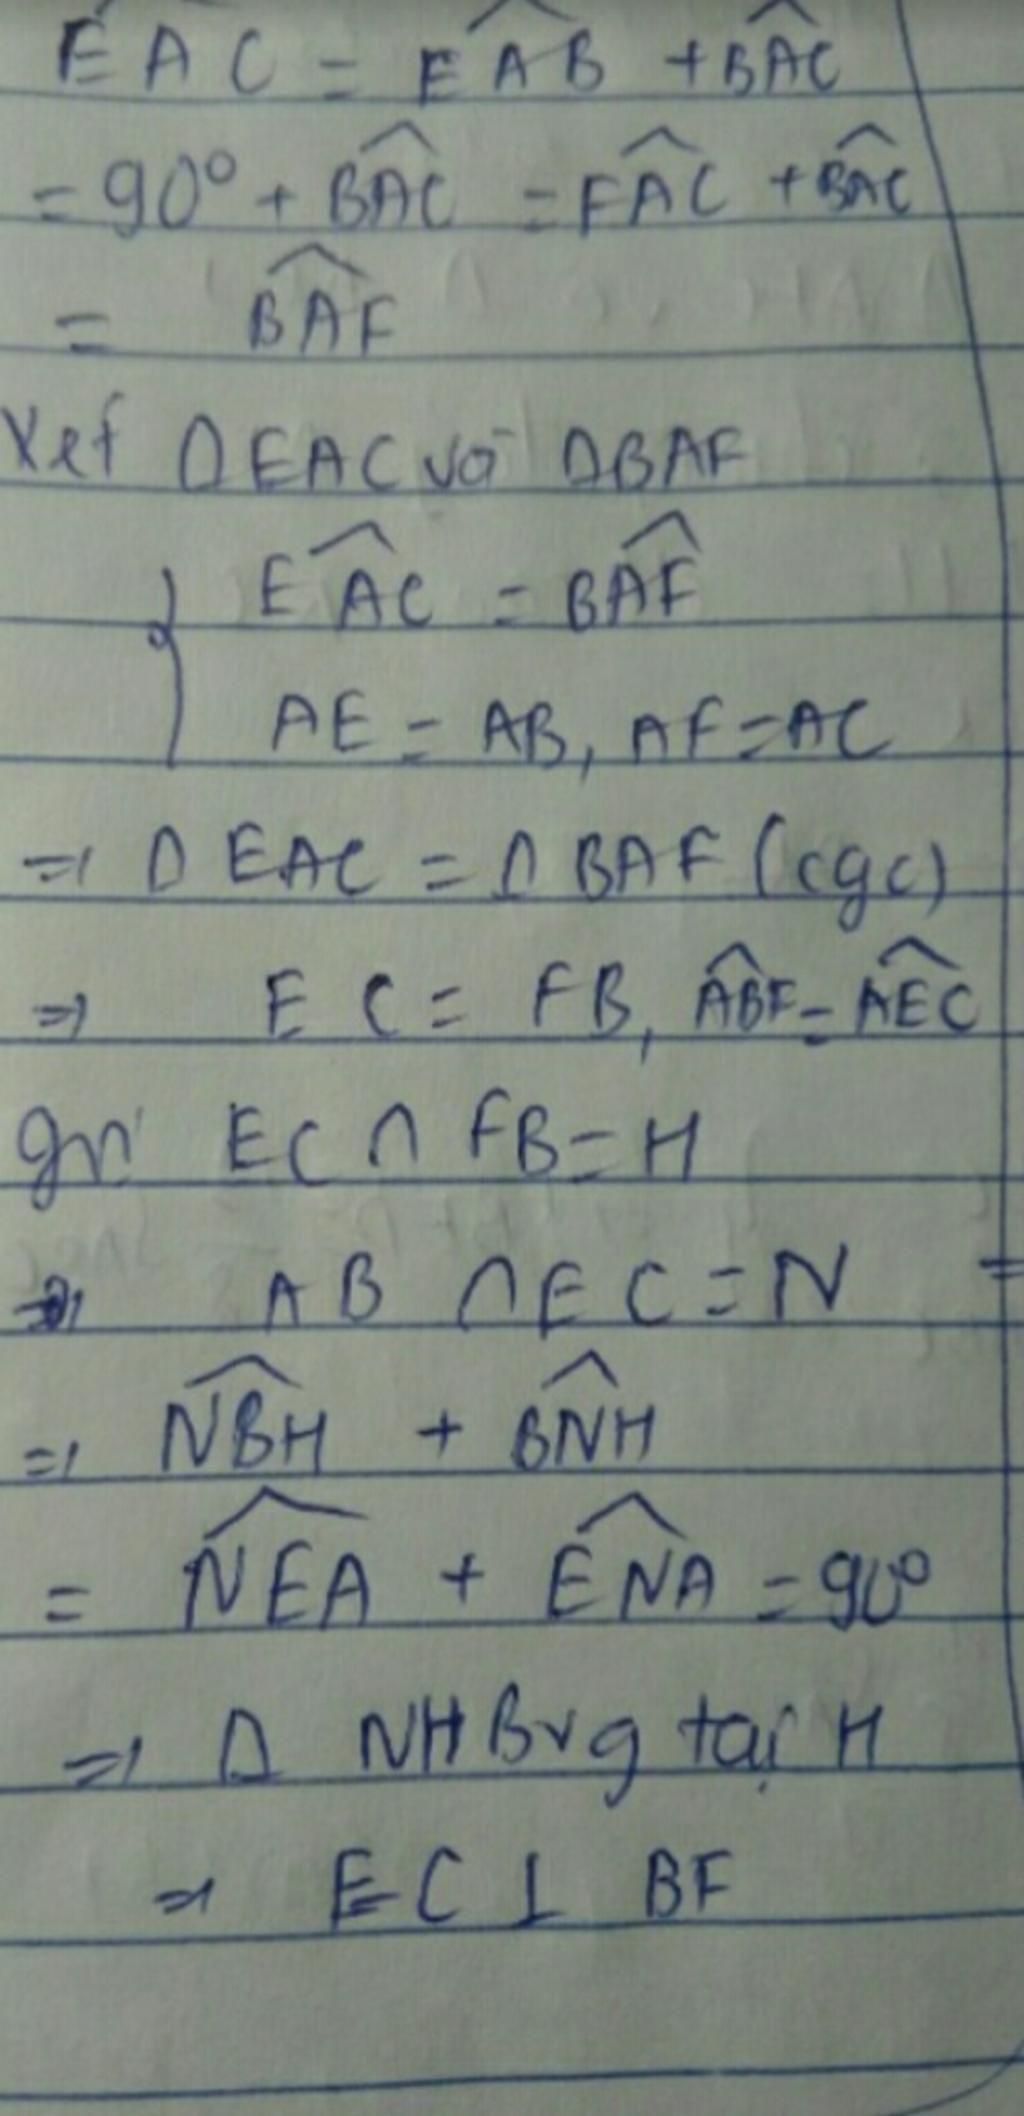 EAC = EAB + BAC
= 90° + BAC = FAC + BAC
= BAF
Xét ΔEAC và ΔBAF
{ EAC = BAF
AE = AB, AF = AC
=> Δ EAC = Δ BAF (cgc)
=> EC = FB, ABF = AEC
gọi EC ∩ FB = H
AB ∩ EC = N =
=> NBH + BNH
= NEA + ENA = 90°
=> Δ NHB vg tại H
=> EC ⊥ BF